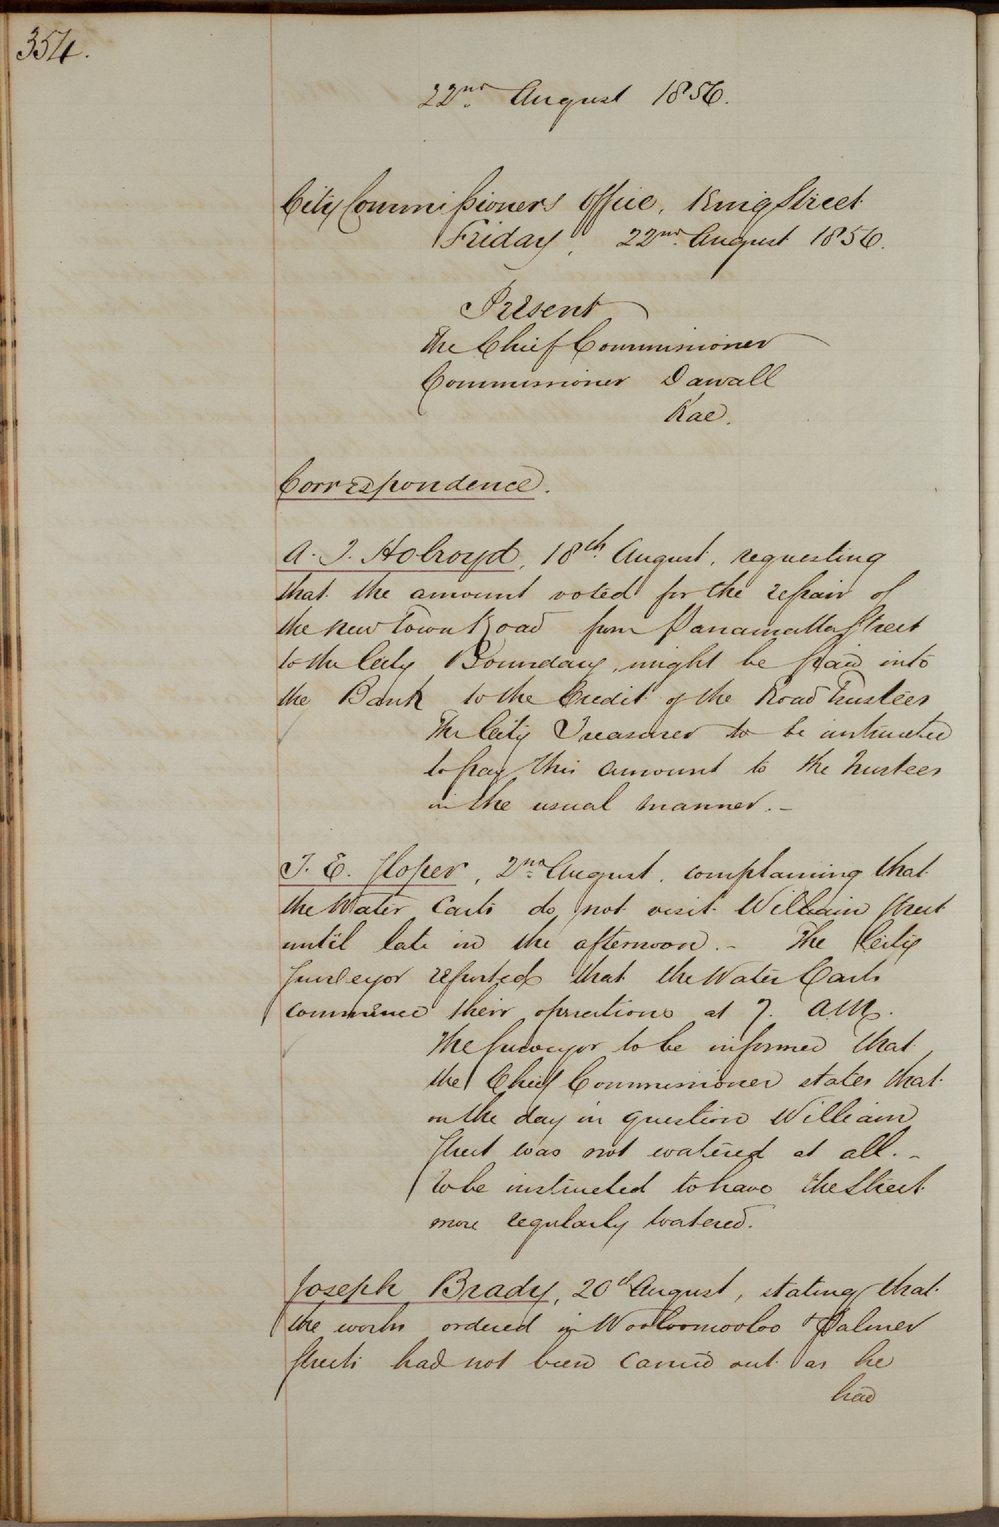 354.
22nd August 1856.
City Commissioners Office, King Street
Friday, 22nd August 1856.
Present
The Chief Commissioner
Commissioner Darvall
Rae.
Correspondence.
A. T. Holroyd, 18th August, requesting
that the amount voted for the repair of
the New Town Road from Parramatta Street
to the City Boundary, might be paid into
the Bank to the Credit of the Road Trustees
The City Treasurer to be instructed
to pay this amount to the Trustees
in the usual manner. -
T. E. Sloper, 2nd August, complaining that
the Water Carts do not visit William Street
until late in the afternoon. - The City
Surveyor reported that the Water Carts
commence their operations at 7. AM.
The Surveyor to be informed that
the Chief Commissioner states that
on the day in question William
Street was not watered at all. -
To be instructed to have the Street
more regularly watered.
Joseph Brady, 20th August, stating that
the works ordered in Woolloomooloo & Palmer
Streets had not been carried out as he
had